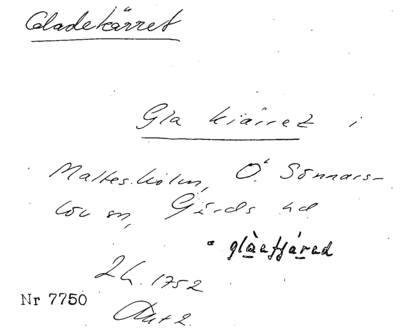 Gladekärret
Gla kiärret i
Maltesholm, Ö. Sönnars-
löv sn, Gärds hd
LH. 1752
Nr 7750
Akt 2